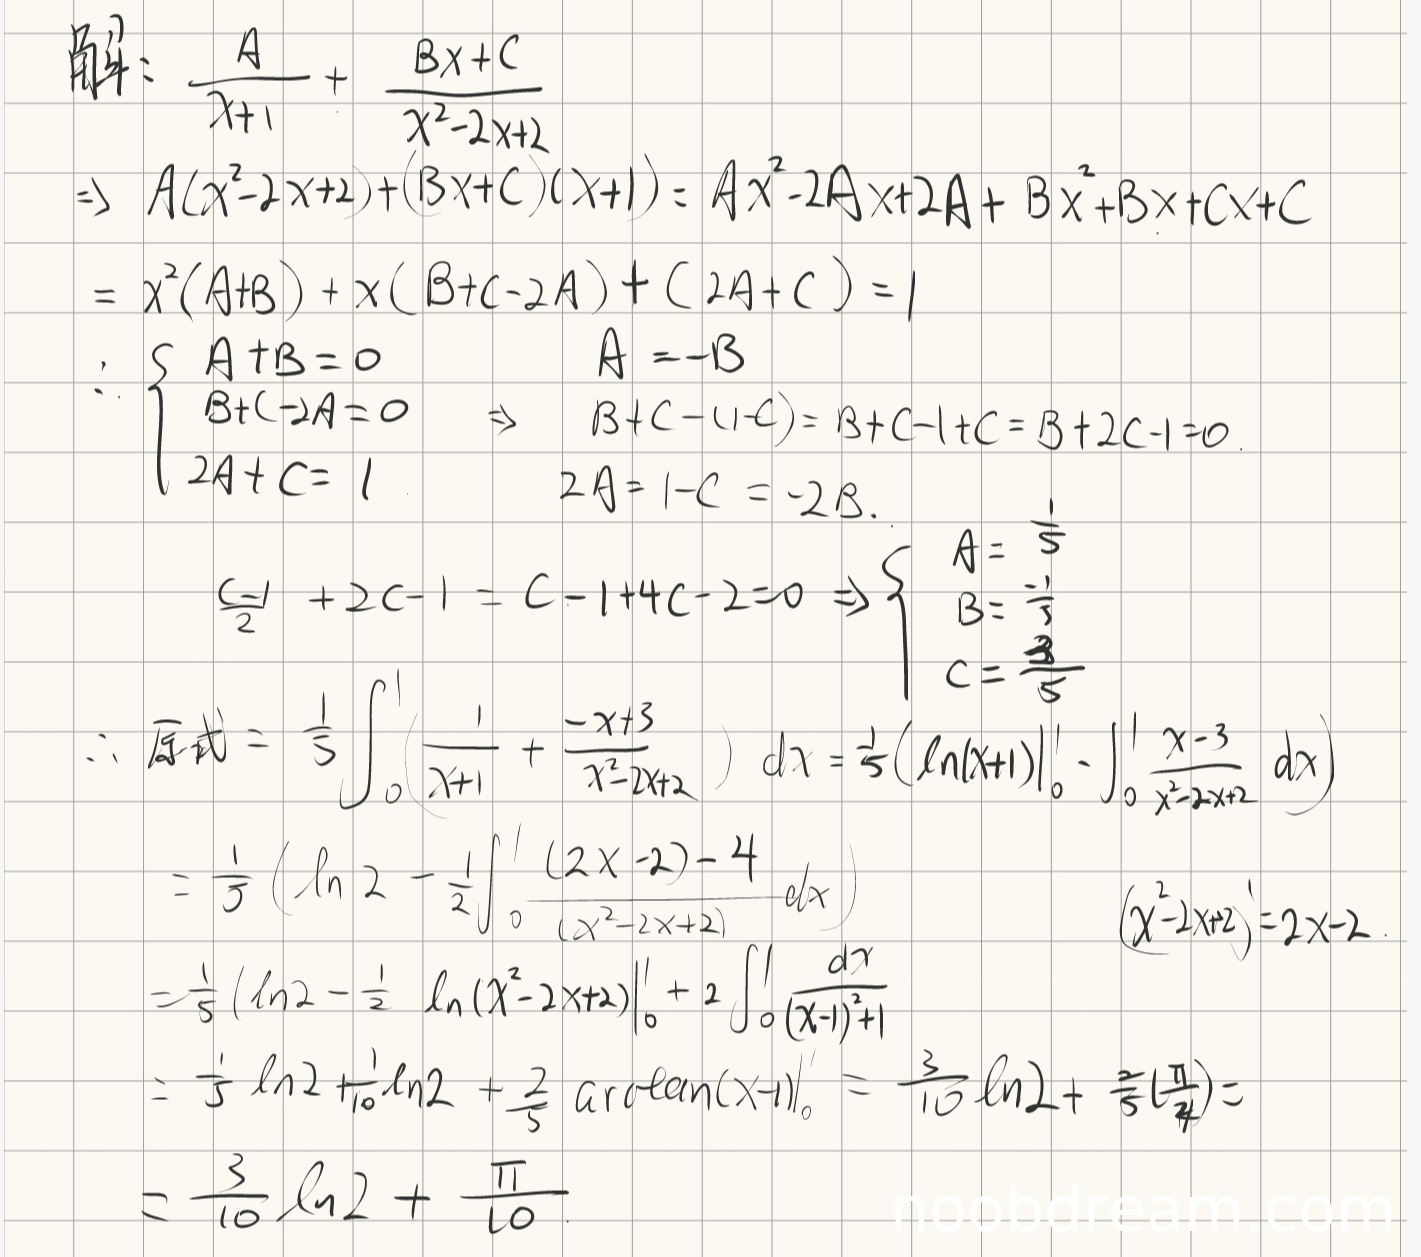 解: A/(x+1) + (Bx+C)/(x²-2x+2)
⇒ A(x²-2x+2)+(Bx+C)(x+1) = Ax²-2Ax+2A+Bx²+Bx+Cx+C
= x²(A+B)+x(B+C-2A)+(2A+C)=1
∴ { A+B=0 A=-B
B+C-2A=0 ⇒ B+C-(1-C)=B+C-1+C=B+2C-1=0.
2A+C=1 2A=1-C=-2B.
(C-1)/2 +2C-1 = C-1+4C-2=0 ⇒ { A=1/5
B=-1/5
C=3/5
∴ 原式 = 1/5 ∫₀¹ ( 1/(x+1) + (-x+3)/(x²-2x+2) ) dx = 1/5 ( ln(x+1)|₀¹ - ∫₀¹ (x-3)/(x²-2x+2) dx )
= 1/5 ( ln2 - 1/2 ∫₀¹ ((2x-2)-4)/(x²-2x+2) dx ) (x²-2x+2)'=2x-2.
= 1/5 ( ln2 - 1/2 ln(x²-2x+2)|₀¹ + 2 ∫₀¹ dx/((x-1)²+1)
= 1/5 ln2 + 1/10 ln2 + 2/5 arctan(x-1)|₀¹ = 3/10 ln2 + 2/5 (π/4) =
= 3/10 ln2 + π/10
noobdream.com